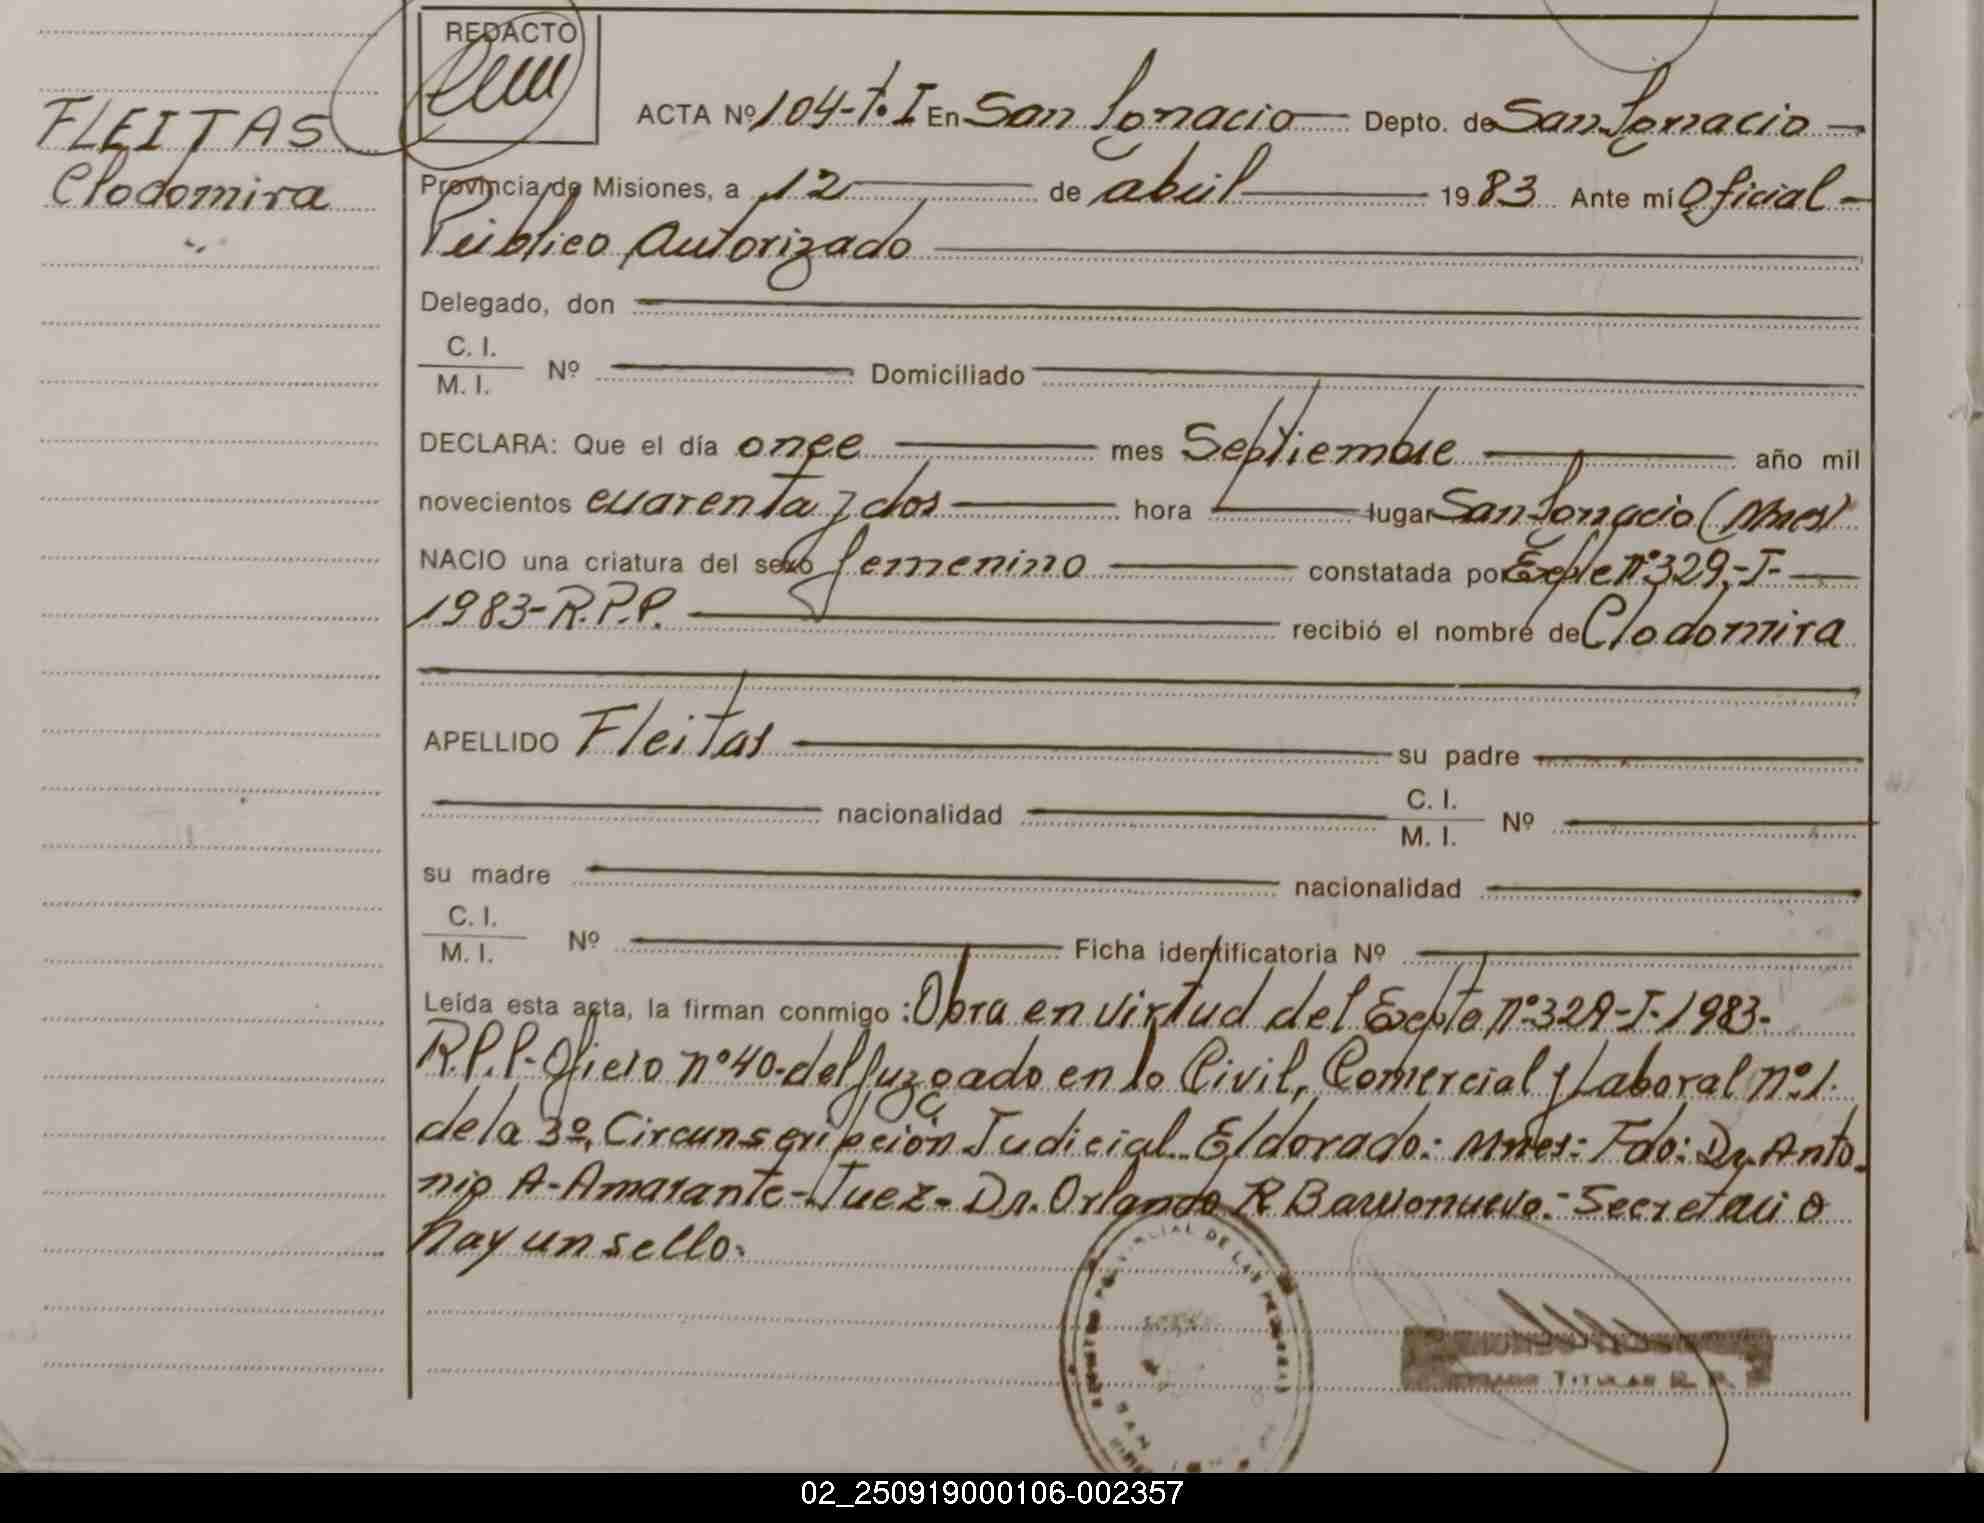 REDACTO
FLEITAS
Clodomira
ACTA Nº 104-t. I En San Ignacio Depto. de San Ignacio
Provincia de Misiones, a 12 de abril 1983 Ante mí Oficial
Público Autorizado
Delegado, don
C. I.
M. I. Nº Domiciliado
DECLARA: Que el día once mes Septiembre año mil
novecientos cuarenta y dos hora lugar San Ignacio (Mnes)
NACIO una criatura del sexo femenino constatada por Expte nº 329-I-
1983-R.P.P. recibió el nombre de Clodomira
APELLIDO Fleitas su padre
nacionalidad C. I.
M. I. Nº
su madre nacionalidad
C. I.
M. I. Nº Ficha identificatoria Nº
Leída esta acta, la firman conmigo : Obra en virtud del Expte nº 329-I-1983-
R.P.P- Oficio nº 40-del Juzgado en lo Civil, Comercial y Laboral nº 1.
de la 3º Circunscripción Judicial Eldorado: Mnes: Fdo: Dr. Anto-
nio A-Amarante-Juez- Dr. Orlando R Barrionuevo:- Secretario
hay un sello.
TITULAR R. P.
02_250919000106-002357